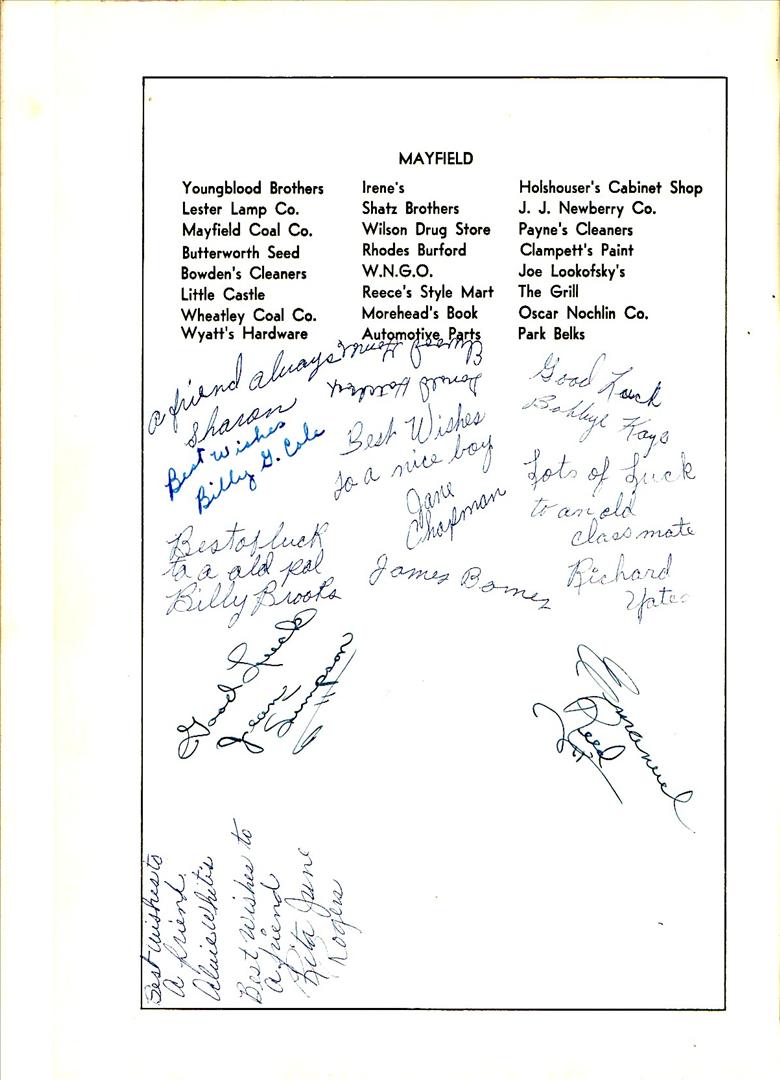 MAYFIELD
Youngblood Brothers
Lester Lamp Co.
Mayfield Coal Co.
Butterworth Seed
Bowden's Cleaners
Little Castle
Wheatley Coal Co.
Wyatt's Hardware
Irene's
Shatz Brothers
Wilson Drug Store
Rhodes Burford
W.N.G.O.
Reece's Style Mart
Morehead's Book
Automotive Parts
Holshouser's Cabinet Shop
J. J. Newberry Co.
Payne's Cleaners
Clampett's Paint
Joe Lookofsky's
The Grill
Oscar Nochlin Co.
Park Belks
a friend always
Sharon
Best Wishes
Billy G. Cole
Donald
Best Wishes
to a nice boy
Jane
Chapman
Good Luck
Bobbye Kaye
Lots of Luck
to an old
classmate
Richard
Yates
Best of luck
to a old pal
Billy Brooks
James
Good Luck
Jean
Simpson
Emanuel
Reed
Best Wishes to
A friend
White
Best Wishes to
a friend
Rita June
Rogers